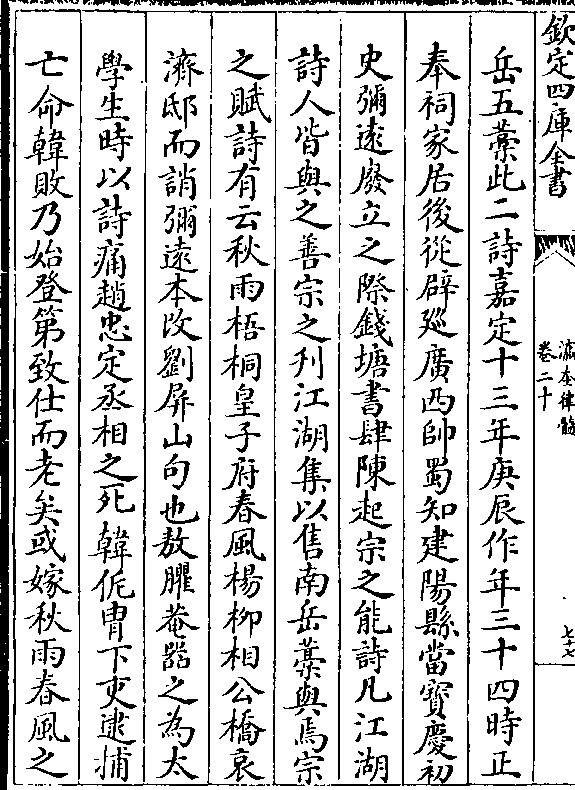 欽定四庫全書
瀛奎律髓
卷二十
七十七
岳五藁此二詩嘉定十三年庚辰作年三十四時正
奉祠家居後從辟廵廣西帥蜀知建陽縣當寳慶初
史彌逺廢立之際錢塘書肆陳起宗之能詩凡江湖
詩人皆與之善宗之刋江湖集以售南岳藁與焉宗
之賦詩有云秋雨梧桐皇子府春風楊柳相公橋哀
濟邸而誚彌逺本改劉屏山句也敖臞菴器之為太
學生時以詩痛趙忠定丞相之死韓侂胄下吏逮捕
亡命韓敗乃始登第致仕而老矣或嫁秋雨春風之